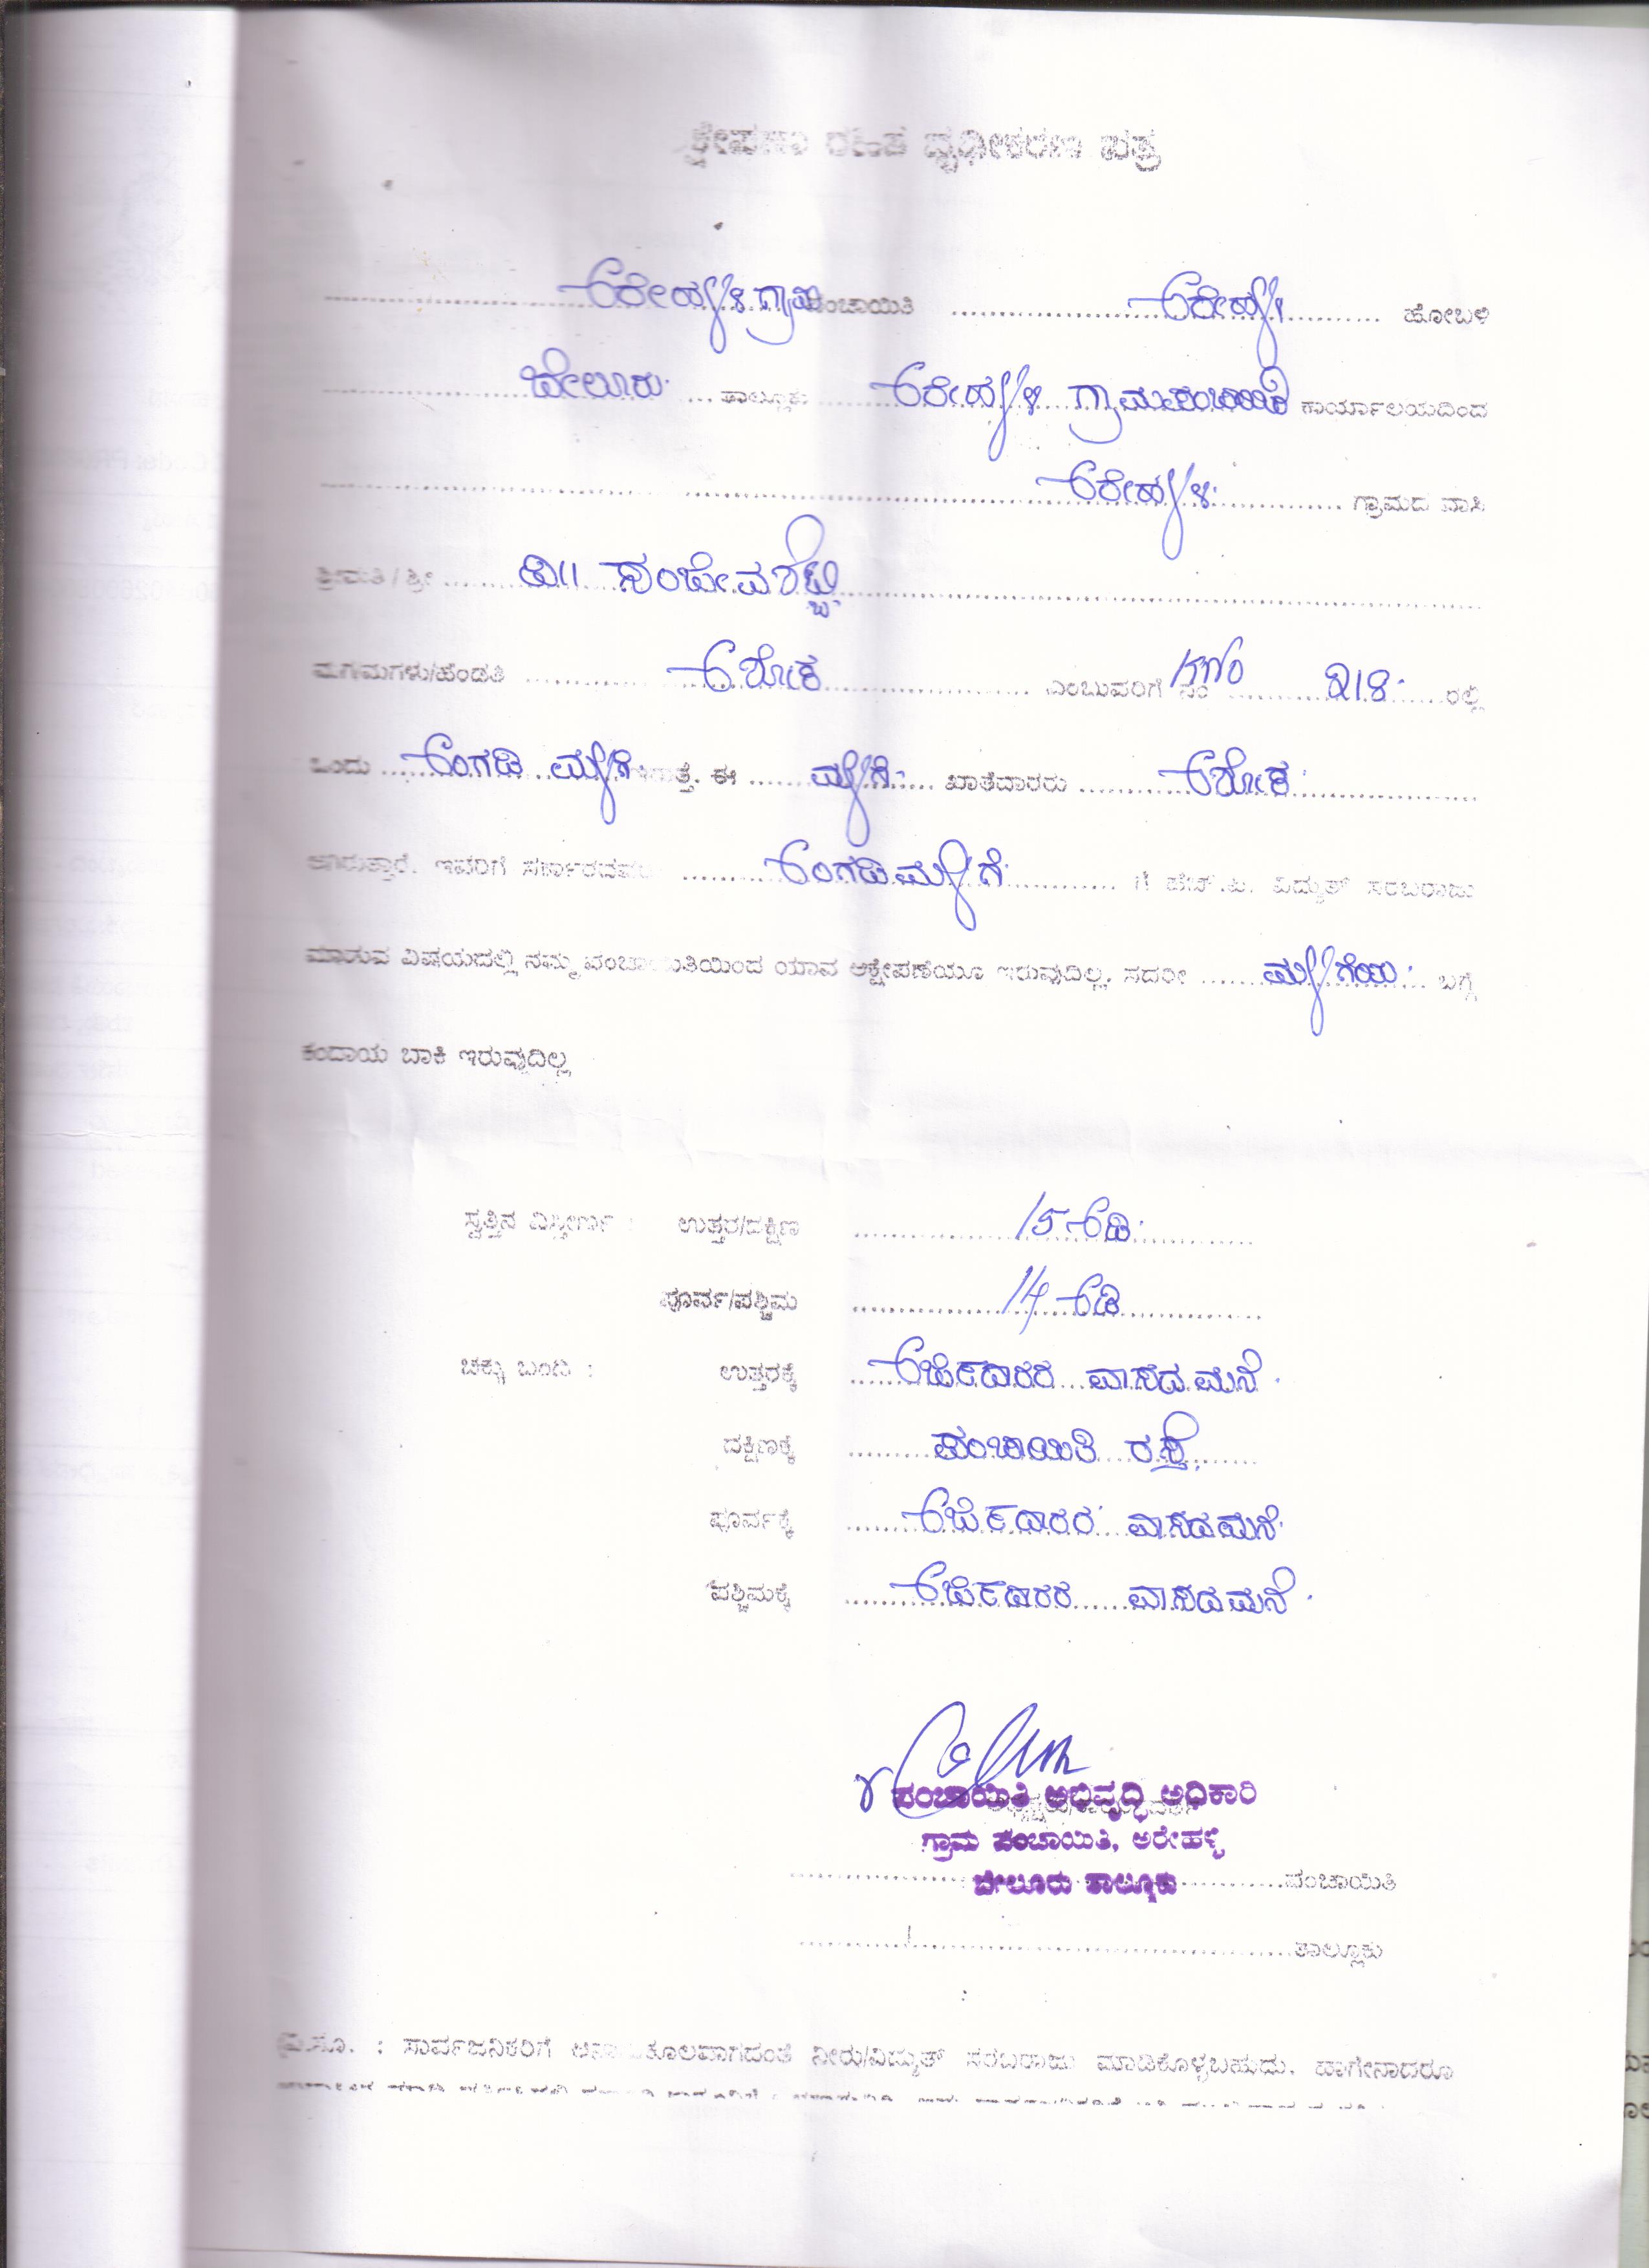 ಕ್ಷೇಪಣಾ ರಹಿತ ದೃಢೀಕರಣ ಪತ್ರ
ಅರೇಹಳ್ಳಿ ಗ್ರಾಮ ಪಂಚಾಯಿತಿ ಅರೇಹಳ್ಳಿ ಹೋಬಳಿ
ಬೇಲೂರು ತಾಲ್ಲೂಕು ಅರೇಹಳ್ಳಿ ಗ್ರಾಮಪಂಚಾಯಿತಿ ಕಾರ್ಯಾಲಯದಿಂದ
ಅರೇಹಳ್ಳಿ ಗ್ರಾಮದ ವಾಸಿ
ಶ್ರೀಮತಿ / ಶ್ರೀ
ಮಗ/ಮಗಳು/ಹೆಂಡತಿ ಅಶೋಕ ಎಂಬುವರಿಗೆ ನಂ 218 ರಲ್ಲಿ
ಒಂದು ಅಂಗಡಿ ಮಳಿಗೆ ಇರುತ್ತೆ. ಈ ಮಳಿಗೆ ಖಾತೆದಾರರು ಅಶೋಕ
ಆಗಿರುತ್ತಾರೆ. ಇವರಿಗೆ ಅಂಗಡಿ ಮಳಿಗೆ ಗೆ ಹೆಚ್.ಪಿ. ವಿದ್ಯುತ್ ಸರಬರಾಜು
ಮಾಡುವ ವಿಷಯದಲ್ಲಿ ನಮ್ಮ ಪಂಚಾಯಿತಿಯಿಂದ ಯಾವ ಆಕ್ಷೇಪಣೆಯೂ ಇರುವುದಿಲ್ಲ. ಸದರೀ ಮಳಿಗೆಯ ಬಗ್ಗೆ
ಕಂದಾಯ ಬಾಕಿ ಇರುವುದಿಲ್ಲ
ಸ್ವತ್ತಿನ ವಿಸ್ತೀರ್ಣ : ಉತ್ತರ/ದಕ್ಷಿಣ 15 ಅಡಿ
ಪೂರ್ವ/ಪಶ್ಚಿಮ 14 ಅಡಿ
ಚಕ್ಕು ಬಂದಿ : ಉತ್ತರಕ್ಕೆ ಅರ್ಜಿದಾರರ ವಾಸದ ಮನೆ
ದಕ್ಷಿಣಕ್ಕೆ ಪಂಚಾಯಿತಿ ರಸ್ತೆ
ಪೂರ್ವಕ್ಕೆ ಅರ್ಜಿದಾರರ ವಾಸದ ಮನೆ
ಪಶ್ಚಿಮಕ್ಕೆ ಅರ್ಜಿದಾರರ ವಾಸದ ಮನೆ
ಪಂಚಾಯಿತಿ ಅಭಿವೃದ್ಧಿ ಅಧಿಕಾರಿ
ಗ್ರಾಮ ಪಂಚಾಯಿತಿ, ಅರೇಹಳ್ಳಿ
ಬೇಲೂರು ತಾಲ್ಲೂಕು ಪಂಚಾಯಿತಿ
ತಾಲ್ಲೂಕು
ವಿ.ಸೂ. : ಸಾರ್ವಜನಿಕರಿಗೆ ಅನಾನುಕೂಲವಾಗದಂತೆ ನೀರು/ವಿದ್ಯುತ್ ಸರಬರಾಜು ಮಾಡಿಕೊಳ್ಳಬಹುದು. ಹಾಗೇನಾದರೂ